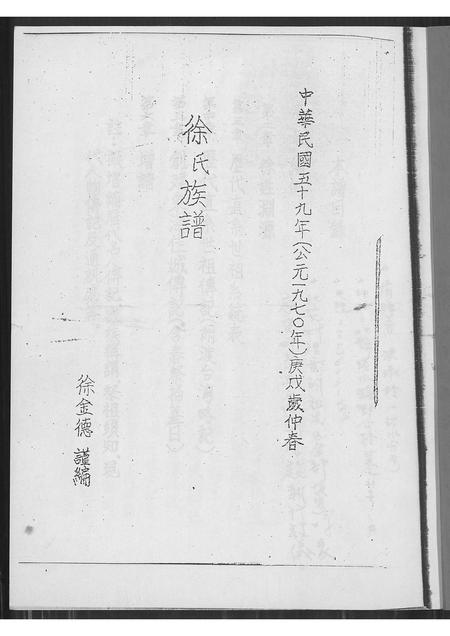 中華民國五十九年(公元一九七〇年)庚戌歲仲春
徐氏族譜
徐金德 謹編